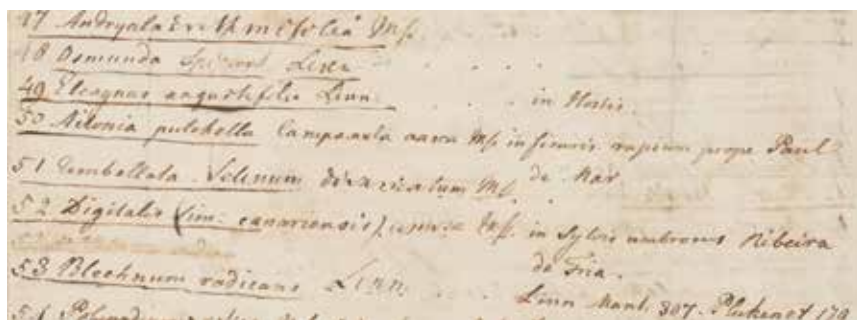 47 Andryala Crithmifolia Mſ.
48 Osmunda Spicant Linn
49 Eleagnus angustifolia Linn . . . in Hortis.
50 Aitonia pulchella Mſ in rupium prope Paul
de Mar
51 Umbellata Selinum divaricatum Mſ
52 Digitalis (Sim. canariensis) Mſ. in Sylvis umbrosis Ribeira
de Fria.
53 Blechnum radicans Linn . . . Linn Mant. 307. Plukenet 179
54